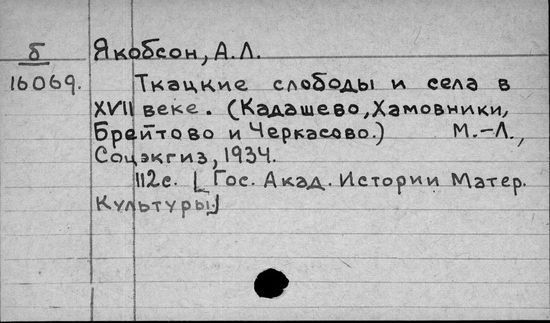 б Якобсон, А.Л.
16069. Ткацкие слободы и села в
XVII веке. (Кадашево, Хамовники,
Брейтово и Черкасово.) М.-Л.,
Соцэкгиз, 1934.
112с. [Гос. Акад. Истории Матер.
Культуры]